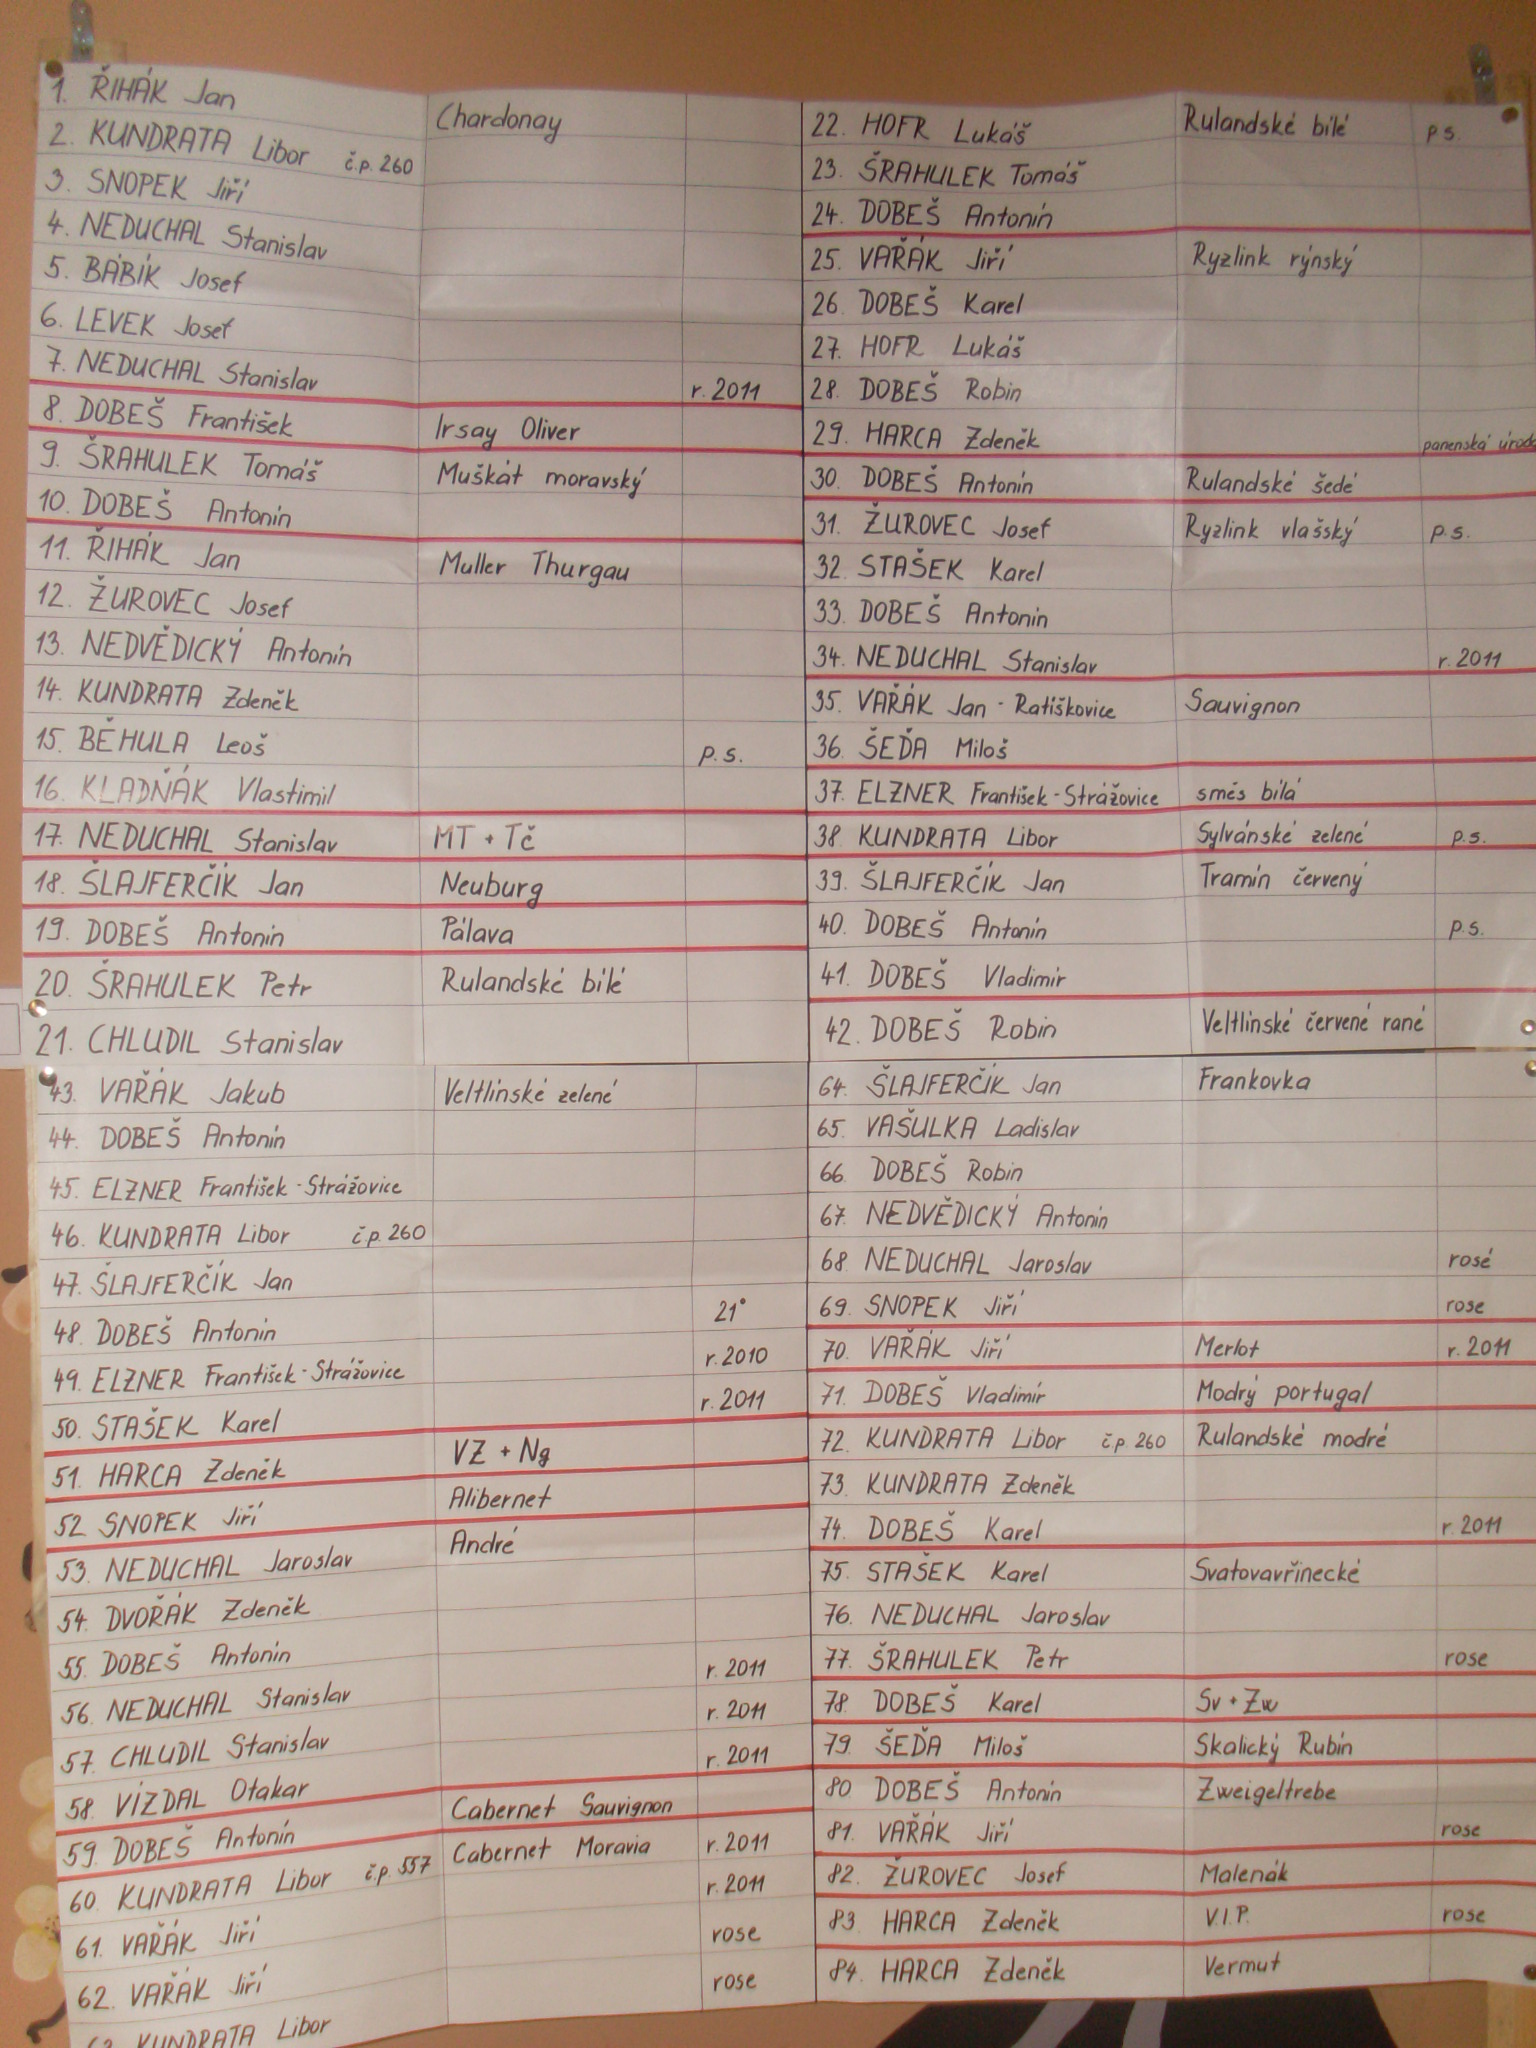 1. ŘIHÁK Jan Chardonay
2. KUNDRATA Libor č.p. 260
3. SNOPEK Jiří
4. NEDUCHAL Stanislav
5. BÁBÍK Josef
6. LEVEK Josef
7. NEDUCHAL Stanislav r. 2011
8. DOBEŠ František Irsay Oliver
9. ŠRAHULEK Tomáš Muškát moravský
10. DOBEŠ Antonín
11. ŘIHÁK Jan Muller Thurgau
12. ŽUROVEC Josef
13. NEDVĚDICKÝ Antonín
14. KUNDRATA Zdeněk
15. BĚHULA Leoš p.s.
16. KLADŇÁK Vlastimil
17. NEDUCHAL Stanislav MT + Tč
18. ŠLAJFERČÍK Jan Neuburg
19. DOBEŠ Antonín Pálava
20. ŠRAHULEK Petr Rulandské bílé
21. CHLUDIL Stanislav
22. HOFR Lukáš Rulandské bílé p.s.
23. ŠRAHULEK Tomáš
24. DOBEŠ Antonín
25. VAŘÁK Jiří Ryzlink rýnský
26. DOBEŠ Karel
27. HOFR Lukáš
28. DOBEŠ Robin
29. HARCA Zdeněk panenská úroda
30. DOBEŠ Antonín Rulandské šedé
31. ŽUROVEC Josef Ryzlink vlašský p.s.
32. STAŠEK Karel
33. DOBEŠ Antonín
34. NEDUCHAL Stanislav r. 2011
35. VAŘÁK Jan - Ratíškovice Sauvignon
36. ŠEĎA Miloš
37. ELZNER František - Strážovice směs bílá
38. KUNDRATA Libor Sylvánské zelené p.s.
39. ŠLAJFERČÍK Jan Tramín červený
40. DOBEŠ Antonín p.s.
41. DOBEŠ Vladimír
42. DOBEŠ Robin Veltlínské červené rané
43. VAŘÁK Jakub Veltlínské zelené
44. DOBEŠ Antonín
45. ELZNER František - Strážovice
46. KUNDRATA Libor č.p. 260
47. ŠLAJFERČÍK Jan
48. DOBEŠ Antonín 21°
49. ELZNER František - Strážovice r. 2010
50. STAŠEK Karel r. 2011
51. HARCA Zdeněk VZ + Ng
52 SNOPEK Jiří Alibernet
53. NEDUCHAL Jaroslav André
54. DVOŘÁK Zdeněk
55. DOBEŠ Antonín r. 2011
56. NEDUCHAL Stanislav r. 2011
57. CHLUDIL Stanislav r. 2011
58. VÍZDAL Otakar Cabernet Sauvignon
59. DOBEŠ Antonín Cabernet Moravia r. 2011
60. KUNDRATA Libor č.p. 557 r. 2011
61. VAŘÁK Jiří rose
62. VAŘÁK Jiří rose
63. KUNDRATA Libor
64. ŠLAJFERČÍK Jan Frankovka
65. VAŠULKA Ladislav
66. DOBEŠ Robin
67. NEDVĚDICKÝ Antonín
68 NEDUCHAL Jaroslav rosé
69. SNOPEK Jiří rose
70. VAŘÁK Jiří Merlot r. 2011
71. DOBEŠ Vladimír Modrý portugal
72. KUNDRATA Libor č.p. 260 Rulandské modré
73. KUNDRATA Zdeněk
74. DOBEŠ Karel r. 2011
75. STAŠEK Karel Svatovavřinecké
76. NEDUCHAL Jaroslav
77. ŠRAHULEK Petr rose
78. DOBEŠ Karel Sv + Zw
79. ŠEĎA Miloš Skalický Rubín
80 DOBEŠ Antonín Zweigeltrebe
81. VAŘÁK Jiří rose
82. ŽUROVEC Josef Malenák
83. HARCA Zdeněk V.I.P. rose
84. HARCA Zdeněk Vermut